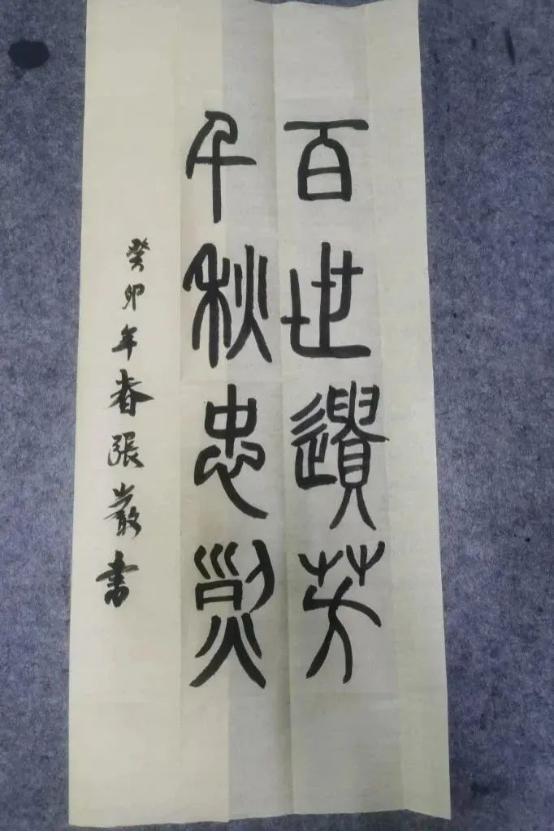 百世遺芳
千秋忠烈
癸卯年春張嚴書